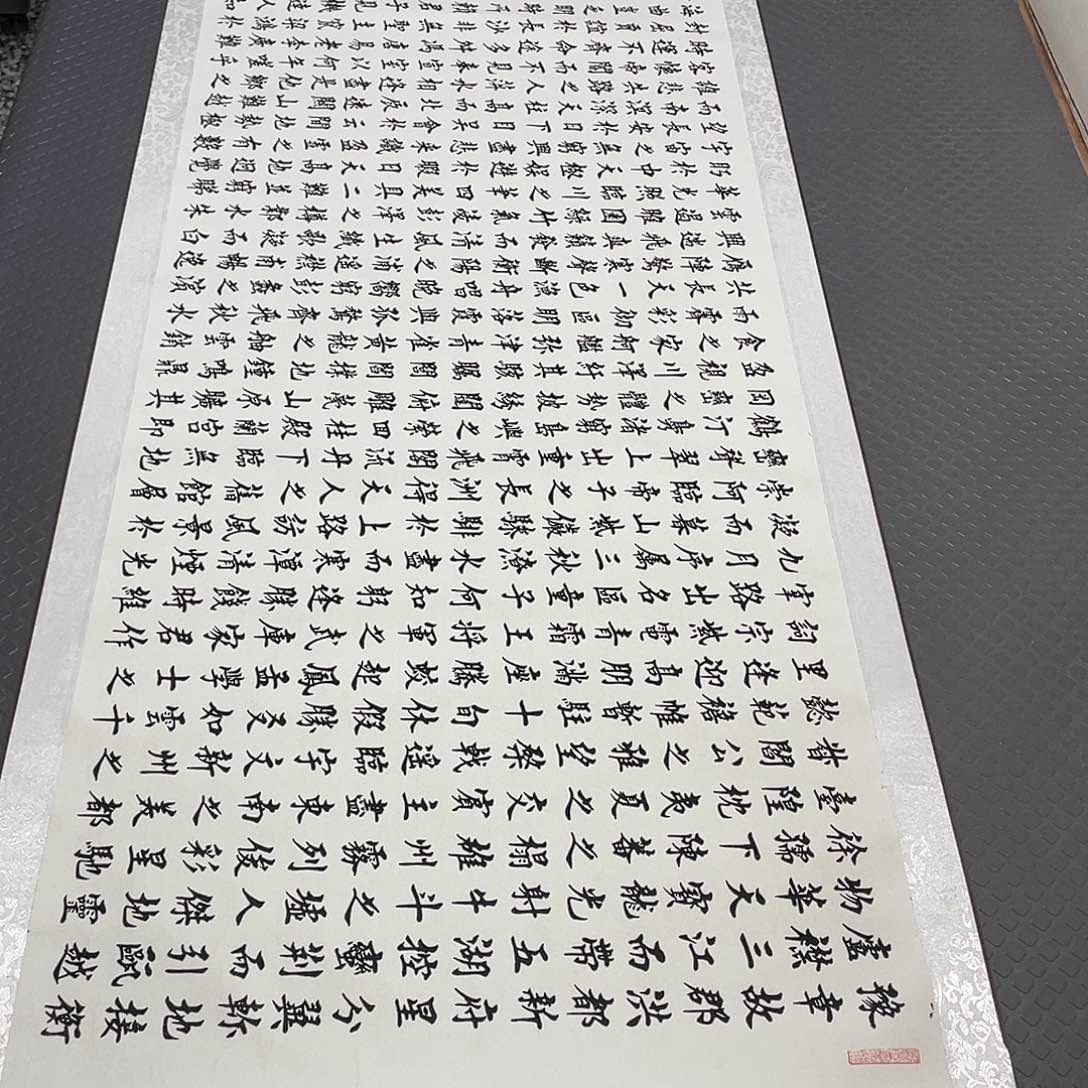 豫章故郡洪都新府星分翼軫地接衡
廬襟三江而帶五湖控蠻荊而引甌越
物華天寶龍光射牛斗之墟人傑地靈
徐孺下陳蕃之榻雄州霧列俊彩星馳
臺隍枕夷夏之交賓主盡東南之美都
督閻公之雅望棨戟遙臨宇文新州之
懿範襜帷暫駐十旬休假勝友如雲千
里逢迎高朋滿座騰蛟起鳳孟學士之
詞宗紫電青霜王將軍之武庫家君作
宰路出名區童子何知躬逢勝餞時維
九月序屬三秋潦水盡而寒潭清煙光
凝而暮山紫儼驂騑於上路訪風景於
崇阿臨帝子之長洲得天人之舊館層
巒聳翠上出重霄飛閣流丹下臨無地
鶴汀鳧渚窮島嶼之縈迴桂殿蘭宮即
岡巒之體勢披繡闥俯雕甍山原曠其
盈視川澤紆其駭矚閭閻撲地鐘鳴鼎
食之家舸艦彌津青雀黃龍之舳雲銷
雨霽彩徹區明落霞與孤鶩齊飛秋水
共長天一色漁舟唱晚響窮彭蠡之濱
雁陣驚寒聲斷衡陽之浦遙襟甫暢逸
興遄飛爽籟發而清風生纖歌凝而白
雲遏睢園綠竹氣凌彭澤之樽鄴水朱
華光照臨川之筆四美具二難並窮睇
眄於中天極娛遊於暇日天高地迥覺
宇宙之無窮興盡悲來識盈虛之有數
望長安於日下目吳會於雲間地勢極
而南溟深天柱高而北辰遠關山難越
誰悲失路之人萍水相逢盡是他鄉之
客懷帝閽而不見奉宣室以何年嗟乎
時運不齊命途多舛馮唐易老李廣難
封屈賈誼於長沙非無聖主竄梁鴻於